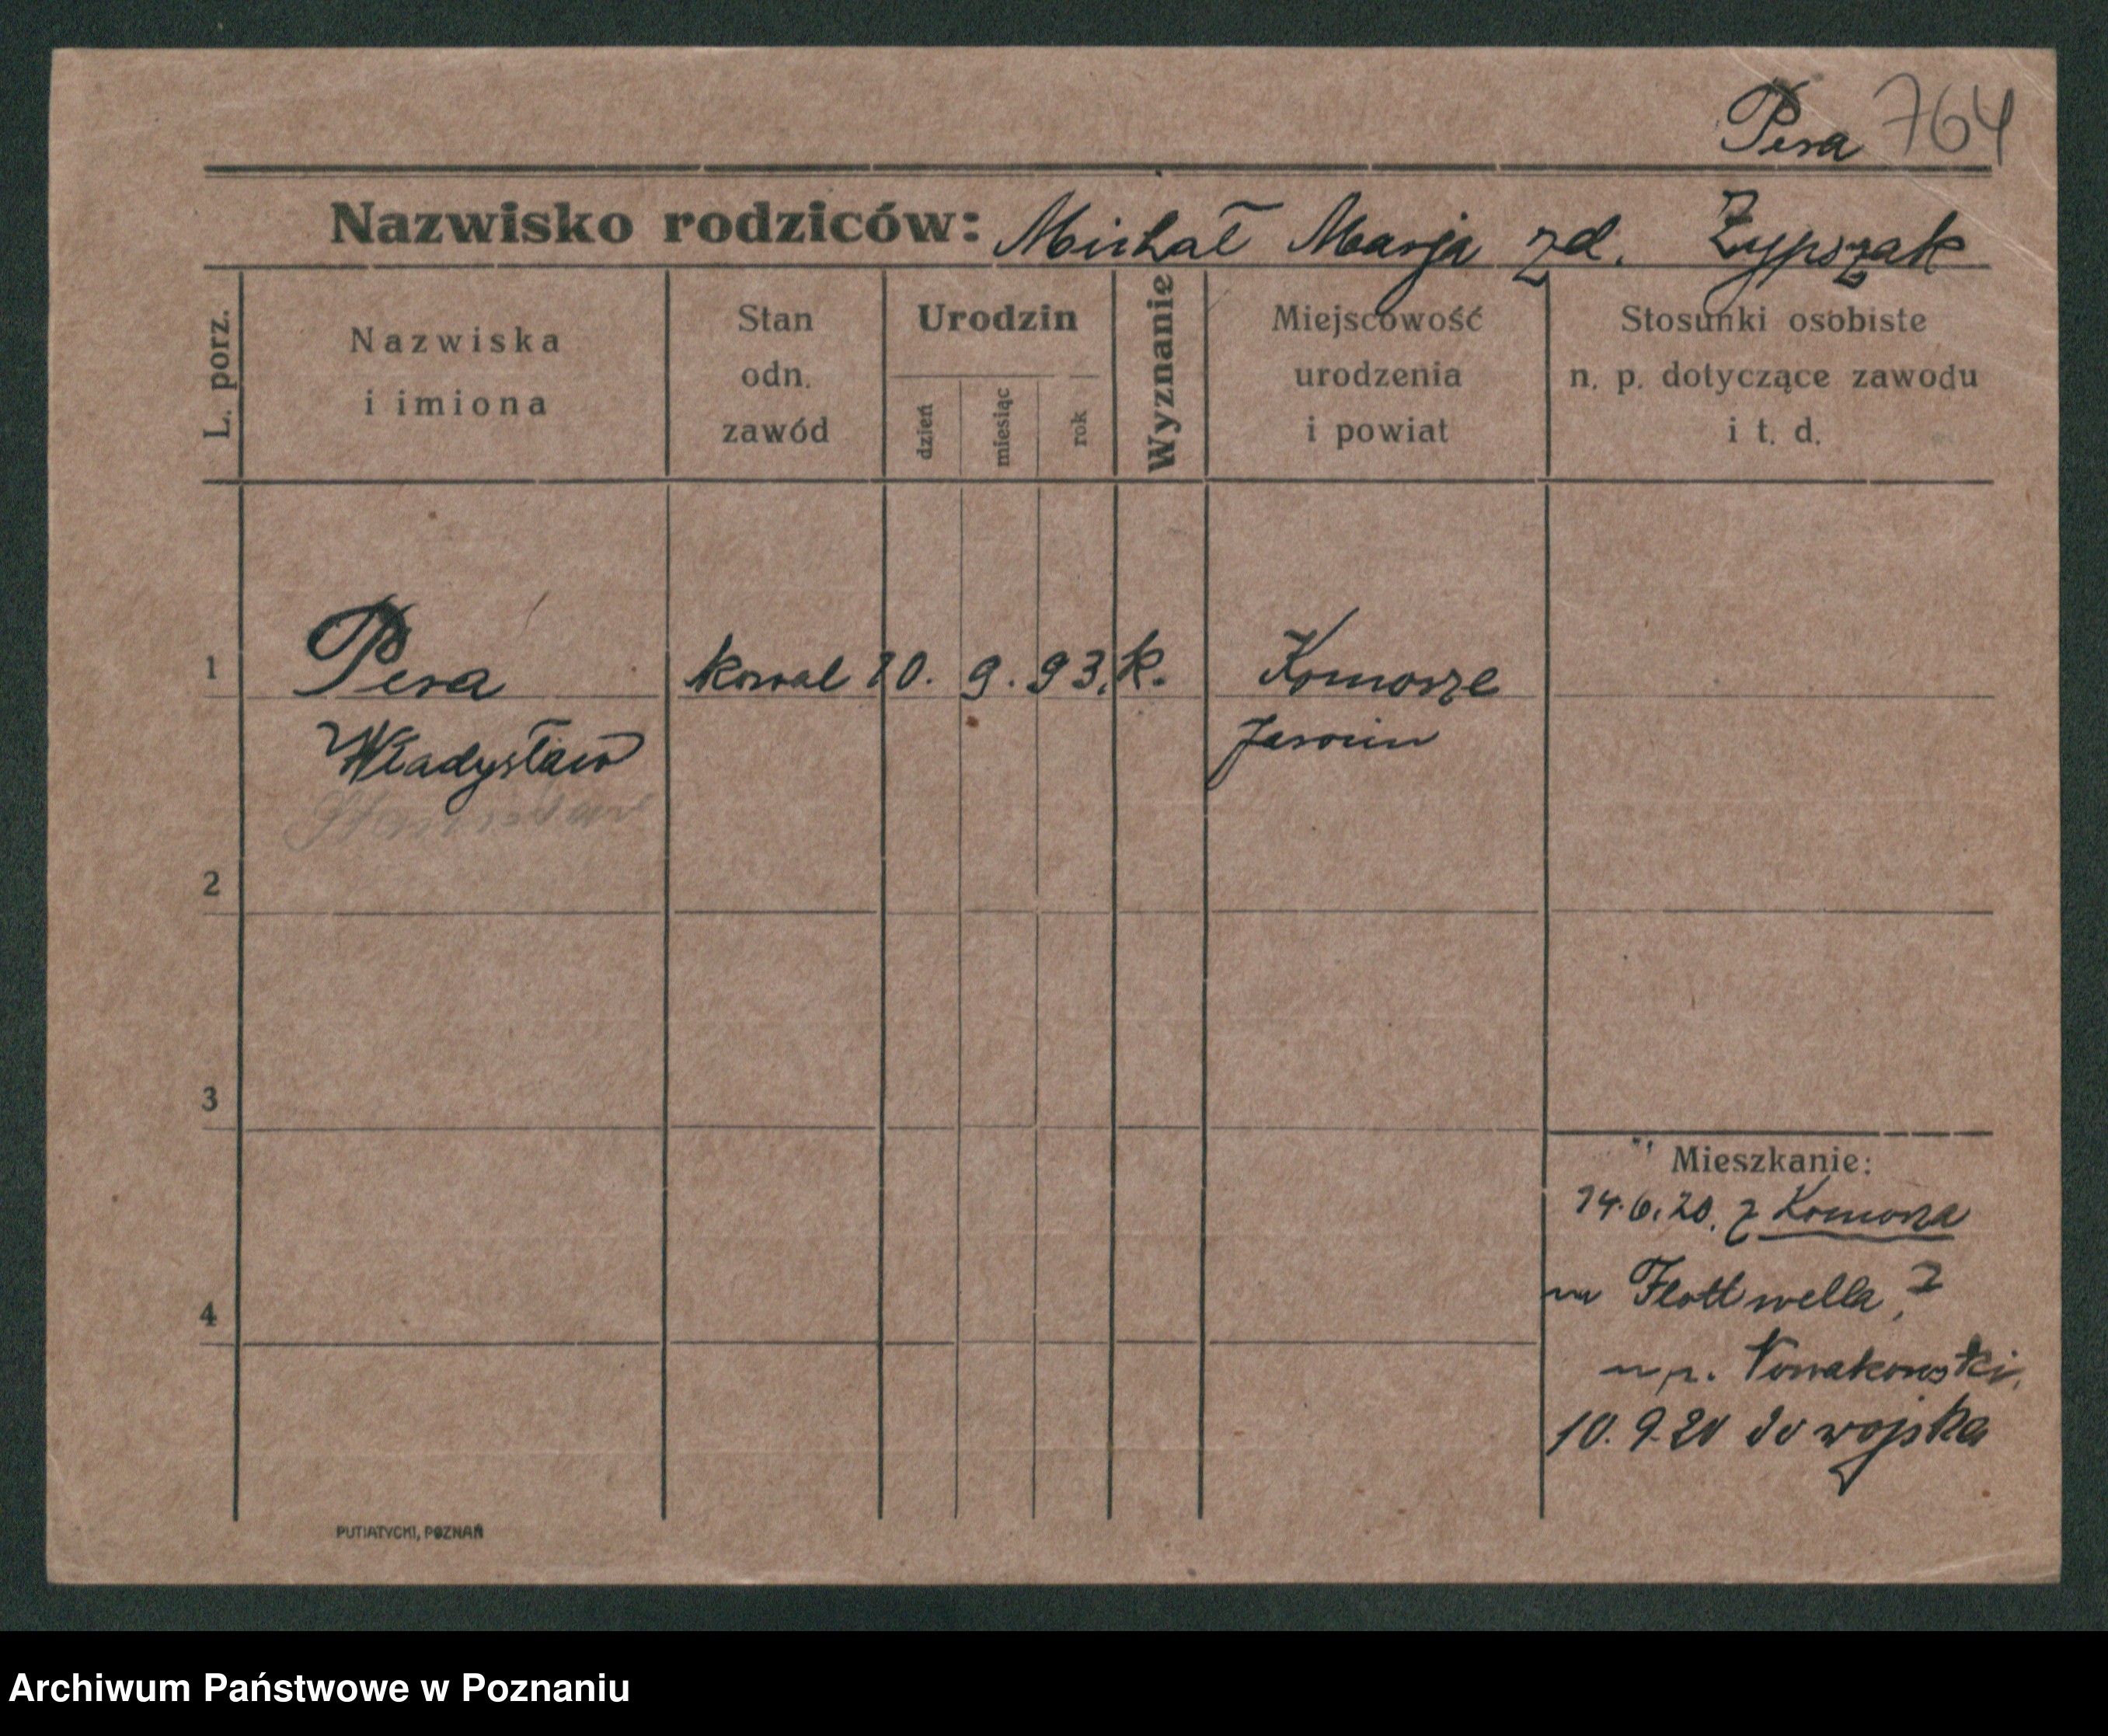 Pera 764
Nazwisko rodziców: Michał Marja zd. Zypszak
L. porz.
Nazwiska
i imiona
Stan
odn.
zawód
Urodzin
dzień
miesiąc
rok
Wyznanie
Miejscowość
urodzenia
i powiat
Stosunki osobiste
n. p. dotyczące zawodu
i t. d.
1 Pera kowal 10. 9. 93. k. Komorze
Władysław Jarocin
Stanisław
2
3
4
Mieszkanie:
14.6.20. z Komorza
Flottwella,
Nowakowski,
10.9.20 do wojska
PUTIATYCKI, POZNAŃ
Archiwum Państwowe w Poznaniu